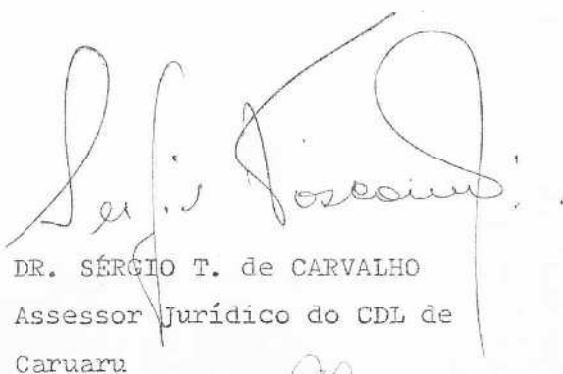 DR. SÉRGIO T. de CARVALHO
Assessor Jurídico do CDL de
Caruaru